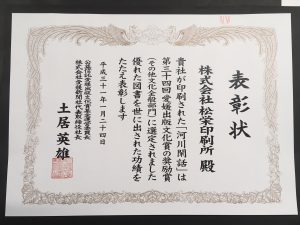 表彰状
株式会社 松栄印刷所 殿
貴社が印刷された「河川閑話」は
第三十四回愛媛出版文化賞の奨励賞
(その他文化全般部門)に選定されました
優れた図書を世に出された功績を
たたえ表彰します
平成三十一年一月二十四日
株式会社愛媛新聞社代表取締役社長
土居英雄